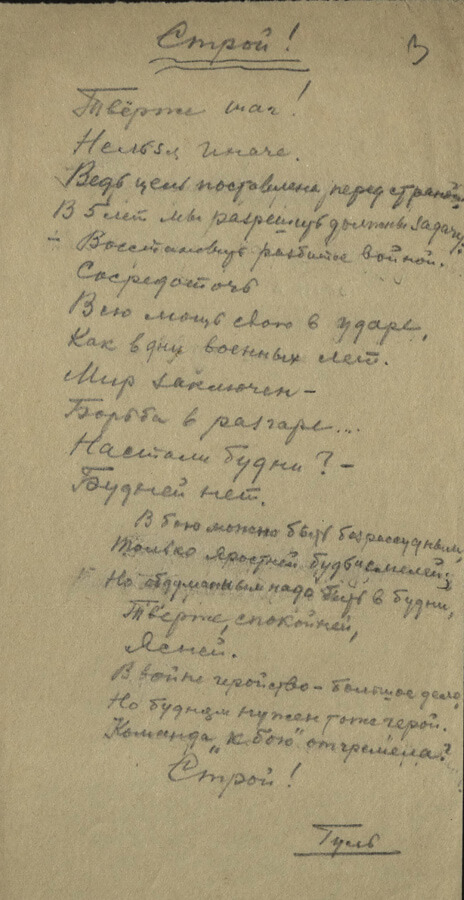 Строй!
3
Твёрже шаг!
Нельзя иначе.
Ведь цель поставлена перед страной.
В 5 лет мы разрешить должны задачу:
— Восстановить разбитое войной.
Сосредоточь
Всю мощь свою в ударе,
Как в дни военных лет.
Мир заключен —
Борьба в разгаре...
Настали будни? —
Будней нет.
В бою можно быть безрассудным,
Только яростней будь и смелей;
Но обдуманным надо быть в будни,
Твёрже, спокойней,
Ясней.
В войне геройство — большое дело,
Но будням нужен тоже герой.
Команда "к бою" отгремела?
Строй!
Гуль